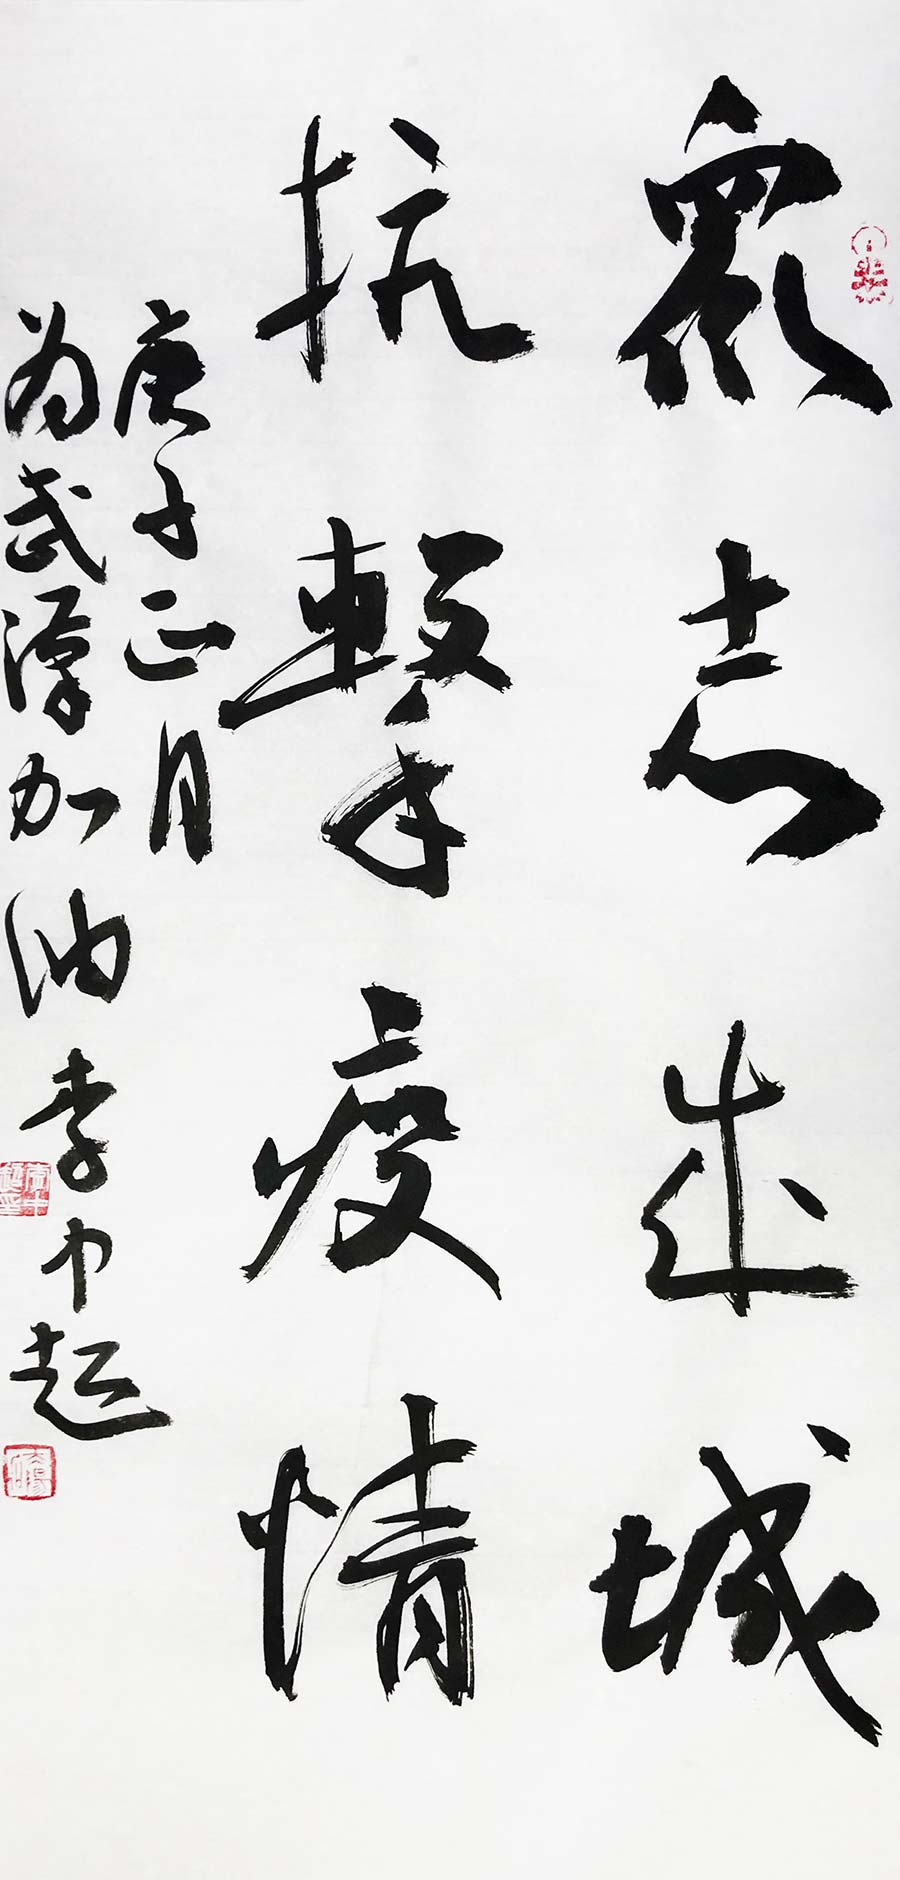 眾志成城
抗擊疫情
庚子正月
为武漢加油李中起